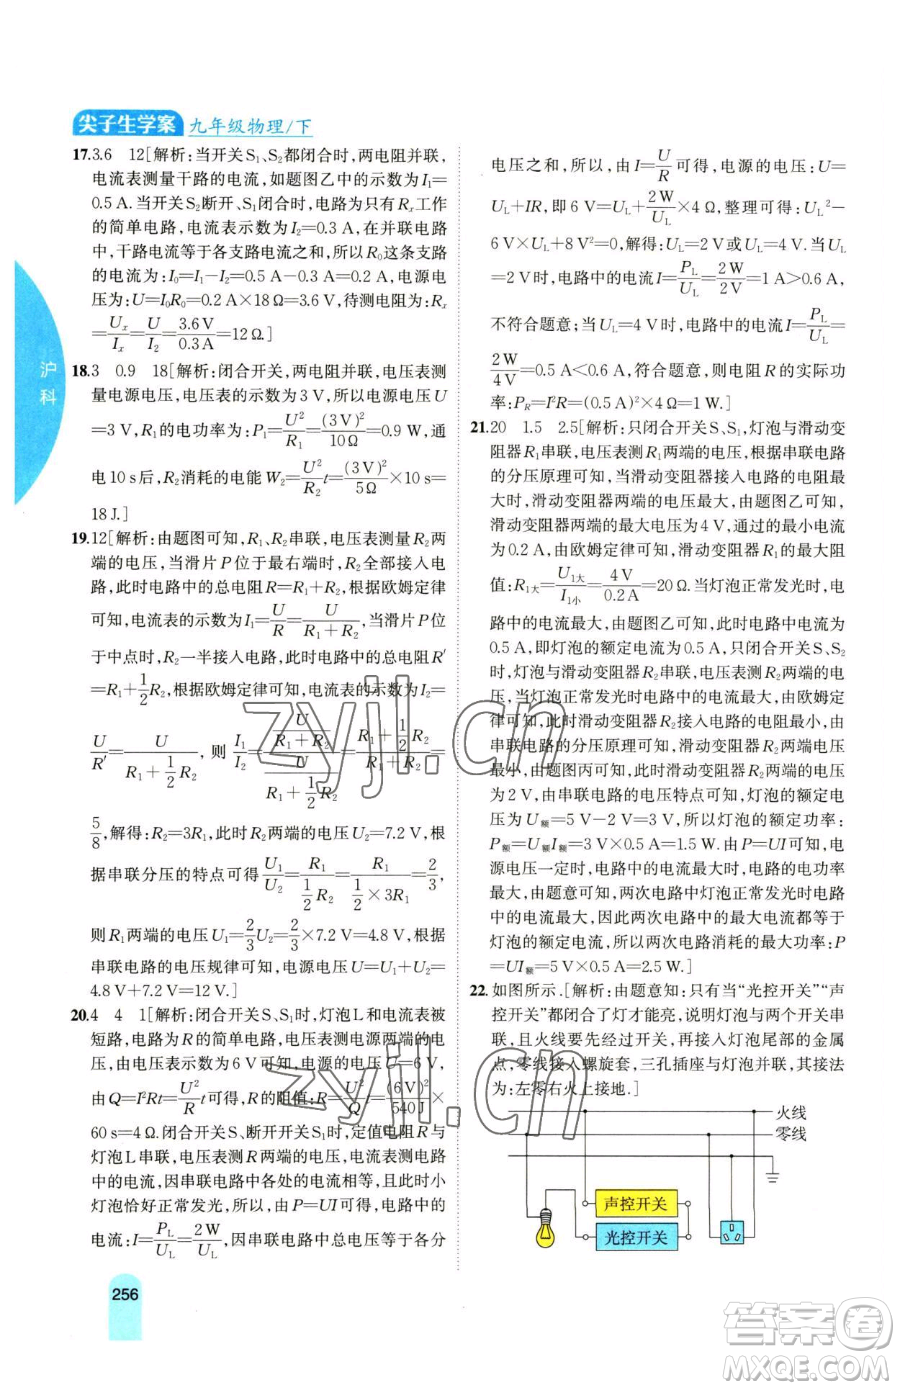 尖子生学案 九年级物理/下
17.3.6 12[解析:当开关S₁、S₂都闭合时,两电阻并联,
电流表测量干路的电流,如题图乙中的示数为I₁=
0.5 A.当开关S₂断开、S₁闭合时,电路为只有Rₓ工作
的简单电路,电流表示数为I₂=0.3 A,在并联电路
中,干路电流等于各支路电流之和,所以R₀这条支路
的电流为:I₀=I₁-I₂=0.5 A-0.3 A=0.2 A,电源电
压为:U=I₀R₀=0.2 A×18 Ω=3.6 V,待测电阻为:Rₓ
=Uₓ/Iₓ=U/I₂=3.6 V/0.3 A=12 Ω.]
18.3 0.9 18[解析:闭合开关,两电阻并联,电压表测
量电源电压,电压表的示数为3 V,所以电源电压U
=3 V,R₁的电功率为:P₁=U²/R₁=(3 V)²/10 Ω=0.9 W,通
电10 s后,R₂消耗的电能W₂=U²/R₂t=(3 V)²/5 Ω×10 s=
18 J.]
19.12[解析:由题图可知,R₁、R₂串联,电压表测量R₂两
端的电压,当滑片P位于最右端时,R₂全部接入电
路,此时电路中的总电阻R=R₁+R₂,根据欧姆定律
可知,电流表的示数为I₁=U/R=U/(R₁+R₂),当滑片P位
于中点时,R₂一半接入电路,此时电路中的总电阻R′
=R₁+1/2R₂,根据欧姆定律可知,电流表的示数为I₂=
U/R′=U/(R₁+1/2R₂),则I₁/I₂=(U/(R₁+R₂))/(U/(R₁+1/2R₂))=(R₁+1/2R₂)/(R₁+R₂)=
5/8,解得:R₂=3R₁,此时R₂两端的电压U₂=7.2 V,根
据串联分压的特点可得U₁/U₂=R₁/(1/2R₂)=R₁/(1/2×3R₁)=2/3,
则R₁两端的电压U₁=2/3U₂=2/3×7.2 V=4.8 V,根据
串联电路的电压规律可知,电源电压U=U₁+U₂=
4.8 V+7.2 V=12 V.]
20.4 4 1[解析:闭合开关S、S₁时,灯泡L和电流表被
短路,电路为R的简单电路,电压表测电源两端的电
压,由电压表示数为6 V可知,电源的电压U=6 V,
由Q=I²Rt=U²/Rt可得,R的阻值:R=U²/Qt=(6 V)²/540 J×
60 s=4 Ω.闭合开关S、断开开关S₁时,定值电阻R与
灯泡L串联,电压表测R两端的电压,电流表测电路
中的电流,因串联电路中各处的电流相等,且此时小
灯泡恰好正常发光,所以,由P=UI可得,电路中的电
流:I=P_L/U_L=2 W/U_L,因串联电路中总电压等于各分
电压之和,所以,由I=U/R可得,电源的电压:U=
U_L+IR,即6 V=U_L+2 W/U_L×4 Ω,整理可得:U_L²-
6 V×U_L+8 V²=0,解得:U_L=2 V或U_L=4 V.当U_L
=2 V时,电路中的电流I=P_L/U_L=2 W/2 V=1 A>0.6 A,
不符合题意;当U_L=4 V时,电路中的电流I=P_L/U_L=
2 W/4 V=0.5 A<0.6 A,符合题意,则电阻R的实际功
率:P_R=I²R=(0.5 A)²×4 Ω=1 W.]
21.20 1.5 2.5[解析:只闭合开关S、S₁,灯泡与滑动变
阻器R₁串联,电压表测滑动变阻器R₁两端的电压.由串联电路
的分压原理可知,当滑动变阻器接入电路中的电阻
最大时,滑动变阻器两端的电压最大,由题图乙可知,
滑动变阻器两端的最大电压为4 V,通过的最小电流
为0.2 A,由欧姆定律可知,滑动变阻器R₁的最大阻
值:R₁大=U₁大/I₁小=4 V/0.2 A=20 Ω.当灯泡正常发光时,电
路中的电流最大,由题图乙可知,此时电路中的电流为
0.5 A,即灯泡的额定电流为0.5 A,只闭合开关S、S₂
时,灯泡与滑动变阻器R₂串联,电压表测R₂两端的电
压,当灯泡正常发光时电路中的电流最大,由欧姆定
律可知,此时滑动变阻器R₂接入电路的电阻最小,由
串联电路的分压原理可知,滑动变阻器R₂两端的电压
最小,由题图丙可知,滑动变阻器R₂两端的最小电压
为2 V,由串联电路的电压特点可知,灯泡的额定电
压为U额=5 V-2 V=3 V,所以灯泡的额定功率:
P额=U额I额=3 V×0.5 A=1.5 W.由P=UI可知,
电源电压一定时,电路中的电流最大时,电路的电功率
最大,由题意可知,两次电路中灯泡正常发光时电路
中的电流最大,因此两次电路中的最大电流都等于
灯泡的额定电流,所以两次电路消耗的最大电功率:P=
UI额=5 V×0.5 A=2.5 W.]
22.如图所示.[解析:由题意知:只有当“光控开关”“声
控开关”都闭合了灯才能亮,说明灯与两个开关串
联,且火线要先经过开关,再接入灯泡尾部的金属
点;零线接入螺旋套,三孔插座与灯泡并联,其接法
为:左零右火上接地.]
火线
零线
声控开关
光控开关
沪科
256
zyjl.cn
zyjl.cn
答案圈
MXQE.COM